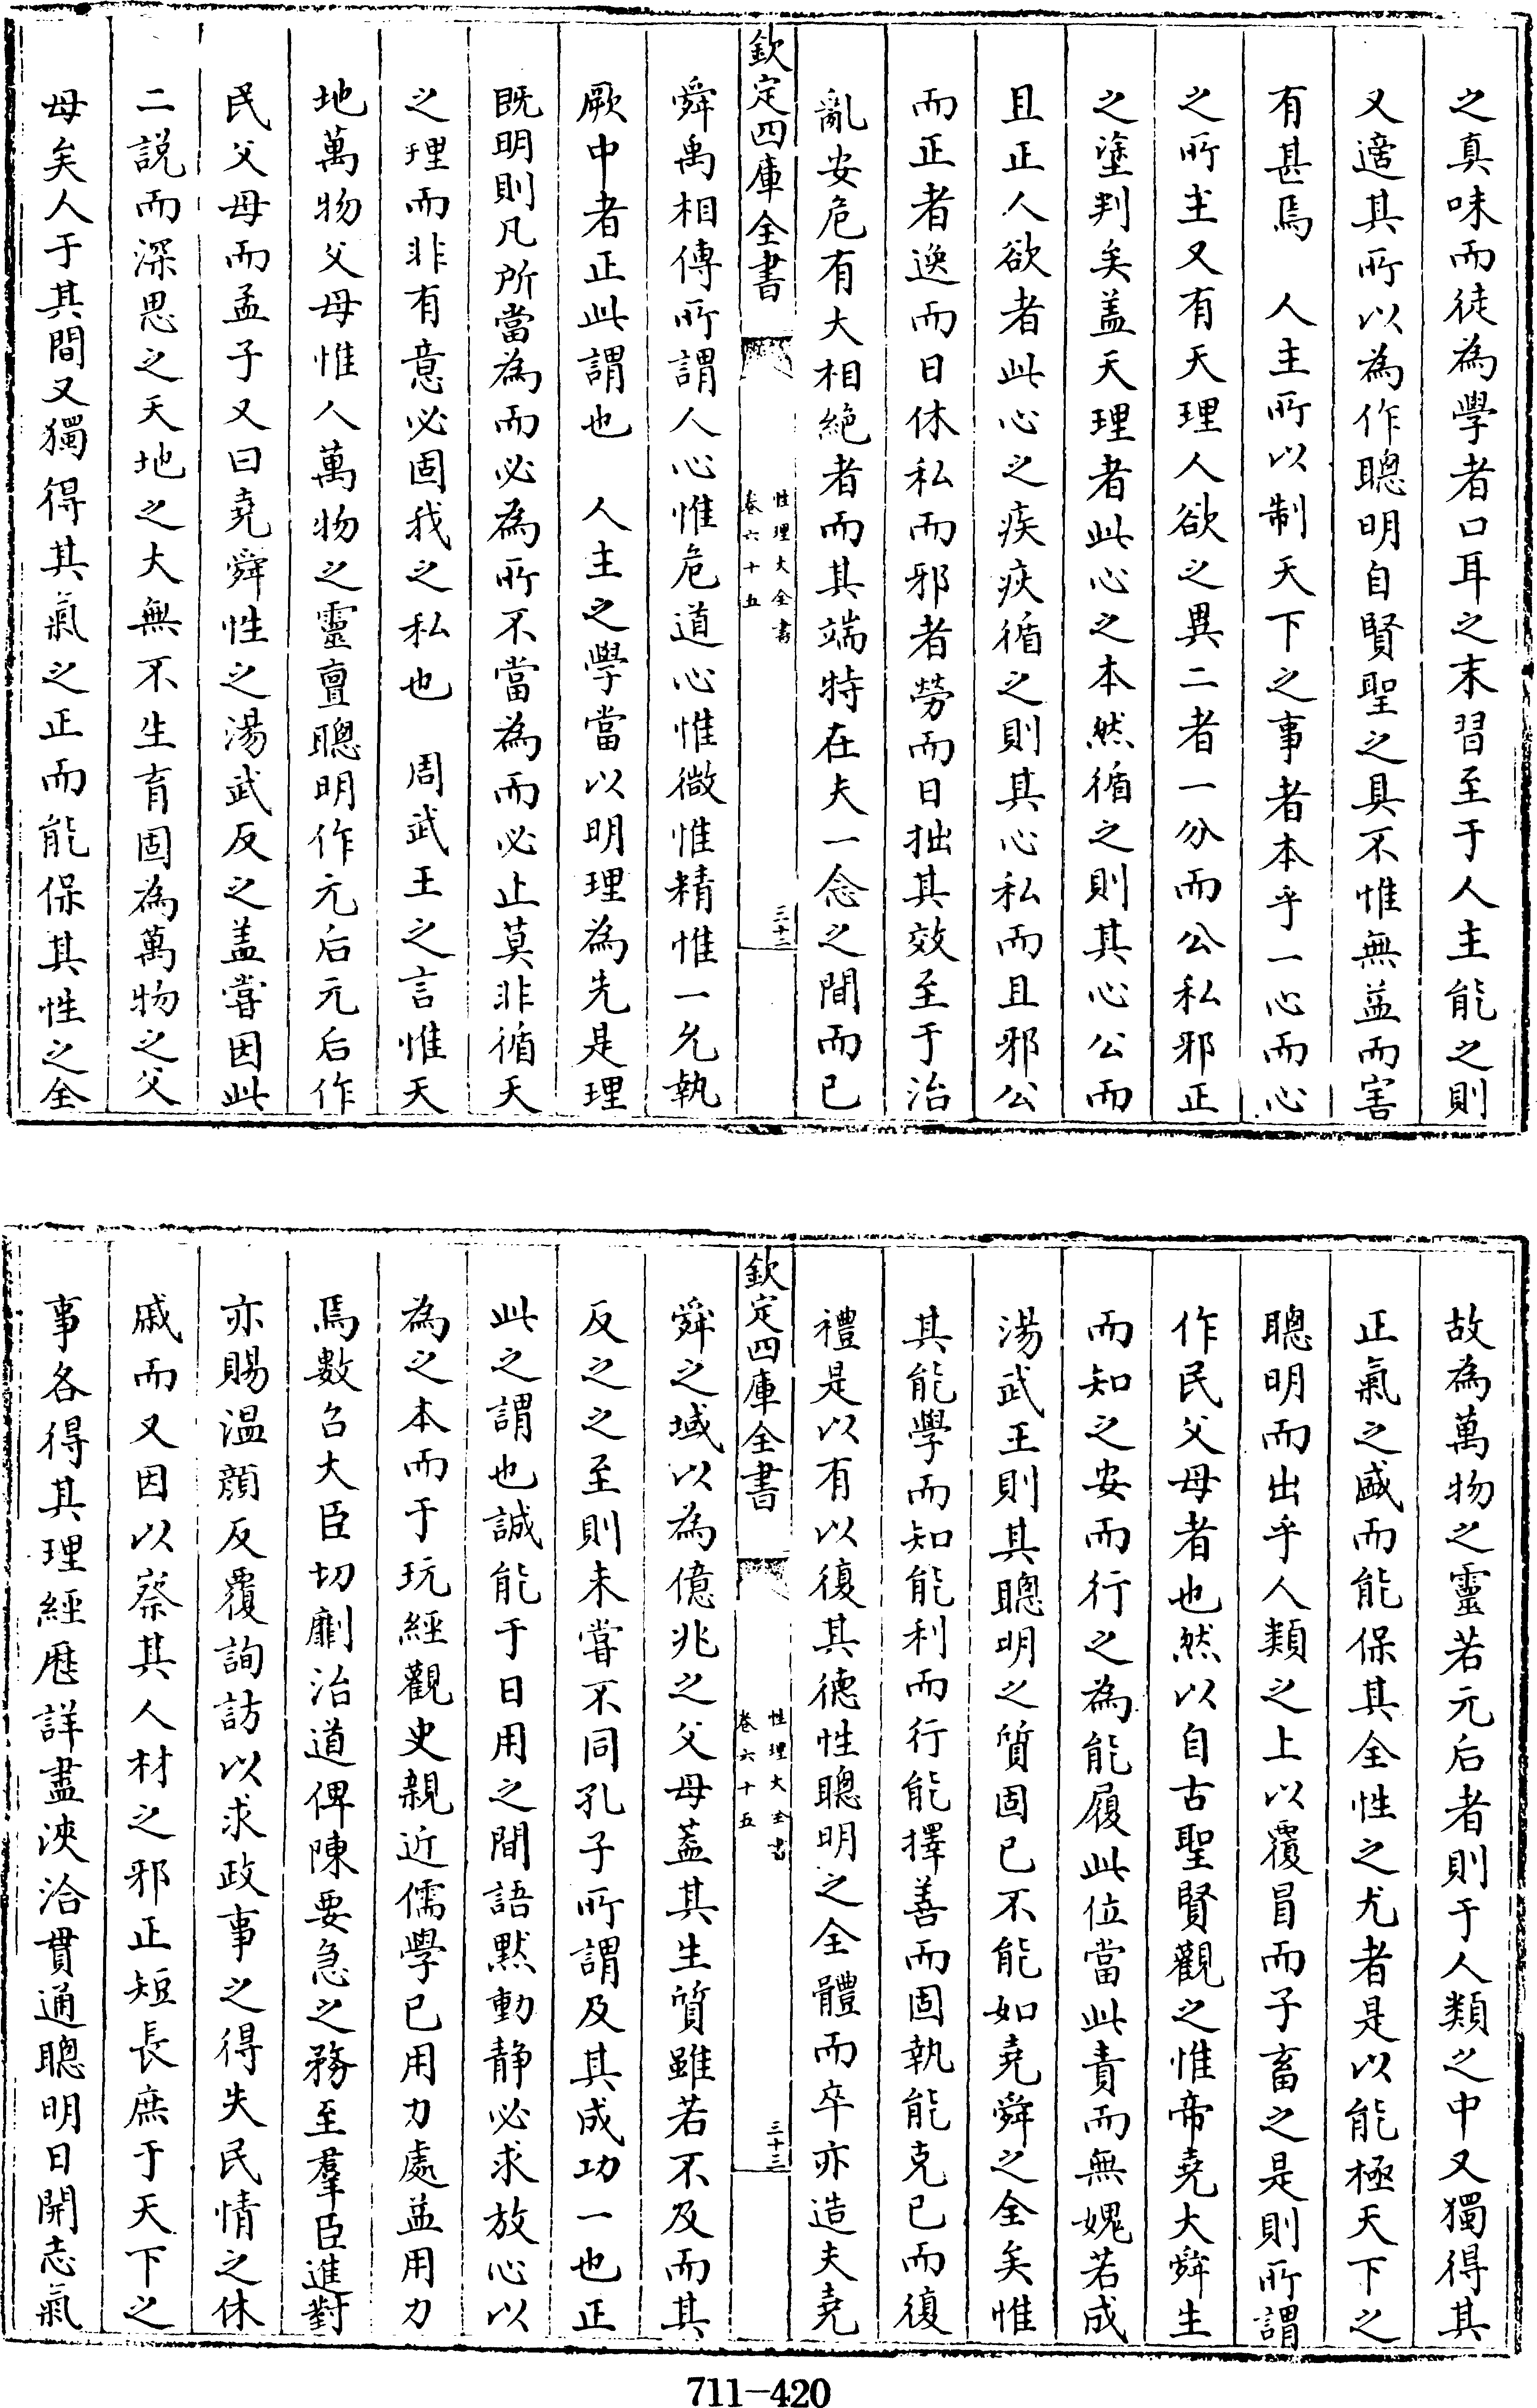 之真味而徒為學者口耳之末習至于人主能之則
又適其所以為作聰明自賢聖之具不惟無益而害
有甚焉　人主所以制天下之事者本乎一心而心
之所主又有天理人欲之異二者一分而公私邪正
之塗判矣盖天理者此心之本然循之則其心公而
且正人欲者此心之疾疢循之則其心私而且邪公
而正者逸而日休私而邪者勞而日拙其效至于治
亂安危有大相絶者而其端特在夫一念之間而已
欽定四庫全書
性理大全書
卷六十五
三十二
舜禹相傳所謂人心惟危道心惟微惟精惟一允執
厥中者正此謂也　人主之學當以明理為先是理
既明則凡所當為而必為所不當為而必止莫非循天
之理而非有意必固我之私也　周武王之言惟天
地萬物父母惟人萬物之靈亶聰明作元后元后作
民父母而孟子又曰堯舜性之湯武反之盖嘗因此
二説而深思之天地之大無不生育固為萬物之父
母矣人于其間又獨得其氣之正而能保其性之全
故為萬物之靈若元后者則于人類之中又獨得其
正氣之盛而能保其全性之尤者是以能極天下之
聰明而出乎人類之上以覆冒而子畜之是則所謂
作民父母者也然以自古聖賢觀之惟帝堯大舜生
而知之安而行之為能履此位當此責而無媿若成
湯武王則其聰明之質固已不能如堯舜之全矣惟
其能學而知能利而行能擇善而固執能克已而復
禮是以有以復其德性聰明之全體而卒亦造夫堯
欽定四庫全書
性理大全書
卷六十五
三十三
舜之域以為億兆之父母葢其生質雖若不及而其
反之之至則未嘗不同孔子所謂及其成功一也正
此之謂也誠能于日用之間語黙動静必求放心以
為之本而于玩經觀史親近儒學已用力處益用力
焉數召大臣切劘治道俾陳要急之務至羣臣進對
亦賜温顔反覆詢訪以求政事之得失民情之休
戚而又因以察其人材之邪正短長庶于天下之
事各得其理經歴詳盡浹洽貫通聰明日開志氣
711-420